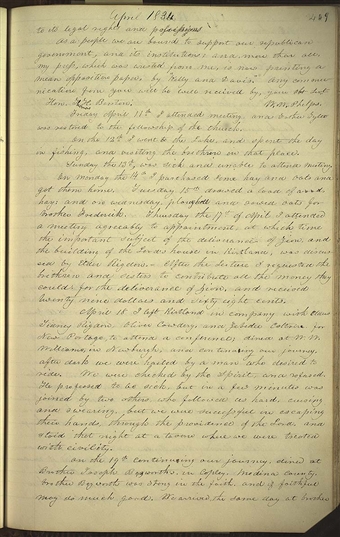 April 1834 459
to its legal rights and possessions
As a people we are bound to support our republican
government, and its institutions; and more than all
my press, which was wrested from me, is now printing a
mean opposition paper, by "Kelly and Davis." Any commu-
nication from you will be well received by, your obt. Servt
Hon. Thos H. Benton. W. W. Phelps.
Friday April 11th I attended meeting, and Brother Tyler
was restored to the fellowship of the church.
On the 12th I went to the lake, and spent the day
in fishing, and visiting the brethren in that place.
Sunday the 13th was sick and unable to attend meeting
On Monday the 14th I purchased some hay and oats and
got them home. Tuesday 15th drawed a load of
hay; and on wednesday, ploughed and sowed oats for
Brother Frederick. Thursday the 17th of April I attended
a meeting agreeably to appointment, at which time
the important subject of the deliverance of Zion, and
the building of the Lord's house in Kirtland, was discus-
sed by Elder Rigdon. After the lecture I requested the
brethren and sisters to contribute all the money they
could for the deliverance of Zion, and received
twenty nine dollars and sixty eight cents.
April 18. I left Kirtland in company with Elders
Sidney Rigdon, Oliver Cowdery, and Zebedee Coltrin for
New Portage, to attend a conference; dined at W. W.
Williams, in Newburgh, and continuing our journey,
after dark we were hailed by a man who desired to
ride. We were checked by the Spirit, and refused.
He professed to be sick, but in a few minutes was
joined by two others, who followed us hard, cursing
and swearing, but we were successful in escaping
their hands, through the providence of the Lord, and
staid that night at a tavern where we were treated
with civility.
On the 19th continuing our journey, dined at
Brother Joseph Bozworth's, in Copley, Medina county.
Brother Bozworth was strong in the faith, and if faithful
may do much good. We arrived the same day at brother